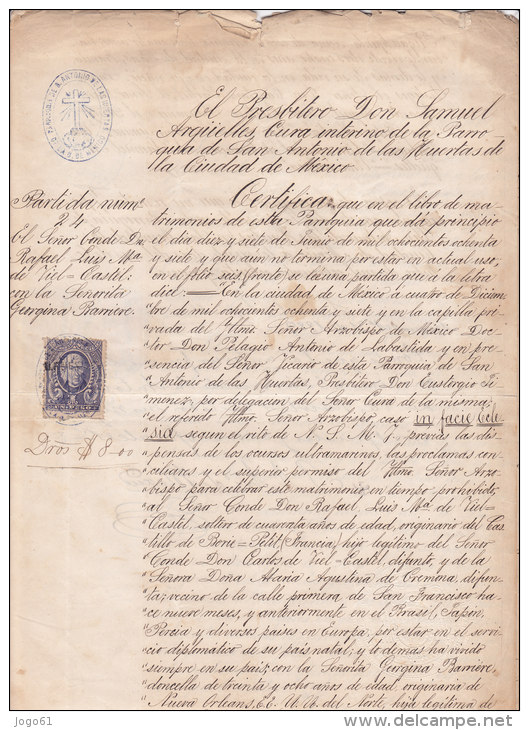 El Presbitero Don Samuel
Argüelles, Cura interino de la Parro-
quia de San Antonio de las Huertas de
la Ciudad de México.
Partida núm.
24
El Señor Conde Dn
Rafael Luis Mª
de Viel-Castel:
con la Señorita
Georgina Barriere.
Dros $8.00
Certifica: que en el libro de ma-
trimonios de esta Parroquia que dá principio
el dia diez y siete de Junio de mil ochocientos ochenta
y siete y que aun no termina por estar en actual uso;
en el folio seis (frente) se lee una partida que á la letra
dice: "En la ciudad de México á cuatro de Diciem
"bre de mil ochocientos ochenta y siete, y en la capilla pri
"vada del Illmo. Señor Arzobispo de México Doc-
"tor Don Pelagio Antonio de Labastida y en pre-
"sencia del Señor Vicario de esta Parroquia de San
"Antonio de las Huertas, Presbítero Don Eustorgio Ji-
"menez, por delegacion del Señor Cura de la misma;
"el referido Illmo. Señor Arzobispo casó in facie Ecle
"siæ segun el rito de N. S. M. I., previas las dis-
"pensas de los ocursos ultramarinos, las proclamas con-
"ciliares y el superior permiso del Illmo. Señor Arzo-
"bispo para celebrar este matrimonio en tiempo prohibido;
"al Señor Conde Don Rafael, Luis Mª de Viel=
"Castel, soltero de cuarenta años de edad, originario del Cas
"tillo de Borie=Petit (Francia), hijo legítimo del Señor
"Conde Don Carlos de Viel=Castel, difunto, y de la
"Señora Doña Maria Agustina de Cremona, difun-
"ta; vecino de la calle primera de San Francisco ha-
"ce nueve meses, y anteriormente en el Brasil, Japon,
"Persia y diversos paises en Europa, por estar en el servi-
"cio diplomático de su pais natal; y lo demas ha vivido
"siempre en su pais; con la Señorita Georgina Barriere,
"doncella de treinta y ocho años de edad, originaria de
"Nueva Orleans, E.E. U.U. del Norte, hija legítima de
jogo61
delcampe.net